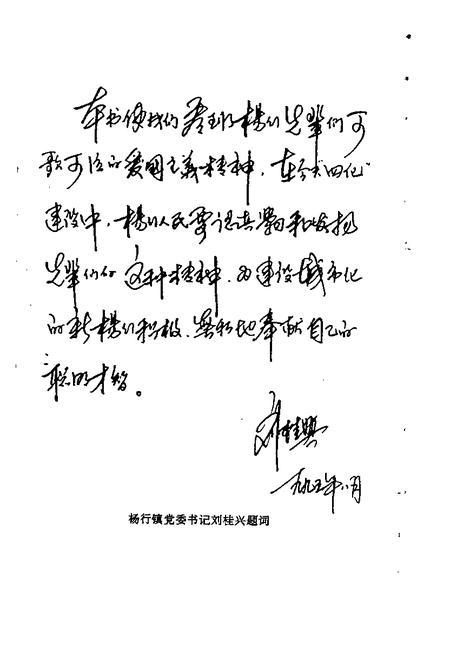 本书使我们看到了杨行先辈们可
歌可泣的爱国主义精神，在今天"四化"
建设中，杨行人民要认真学习和发扬
先辈们的这种精神，为建设城市化
的新杨行积极、无私地奉献自己的
聪明才智。
刘桂兴
一九九五年八月
杨行镇党委书记刘桂兴题词